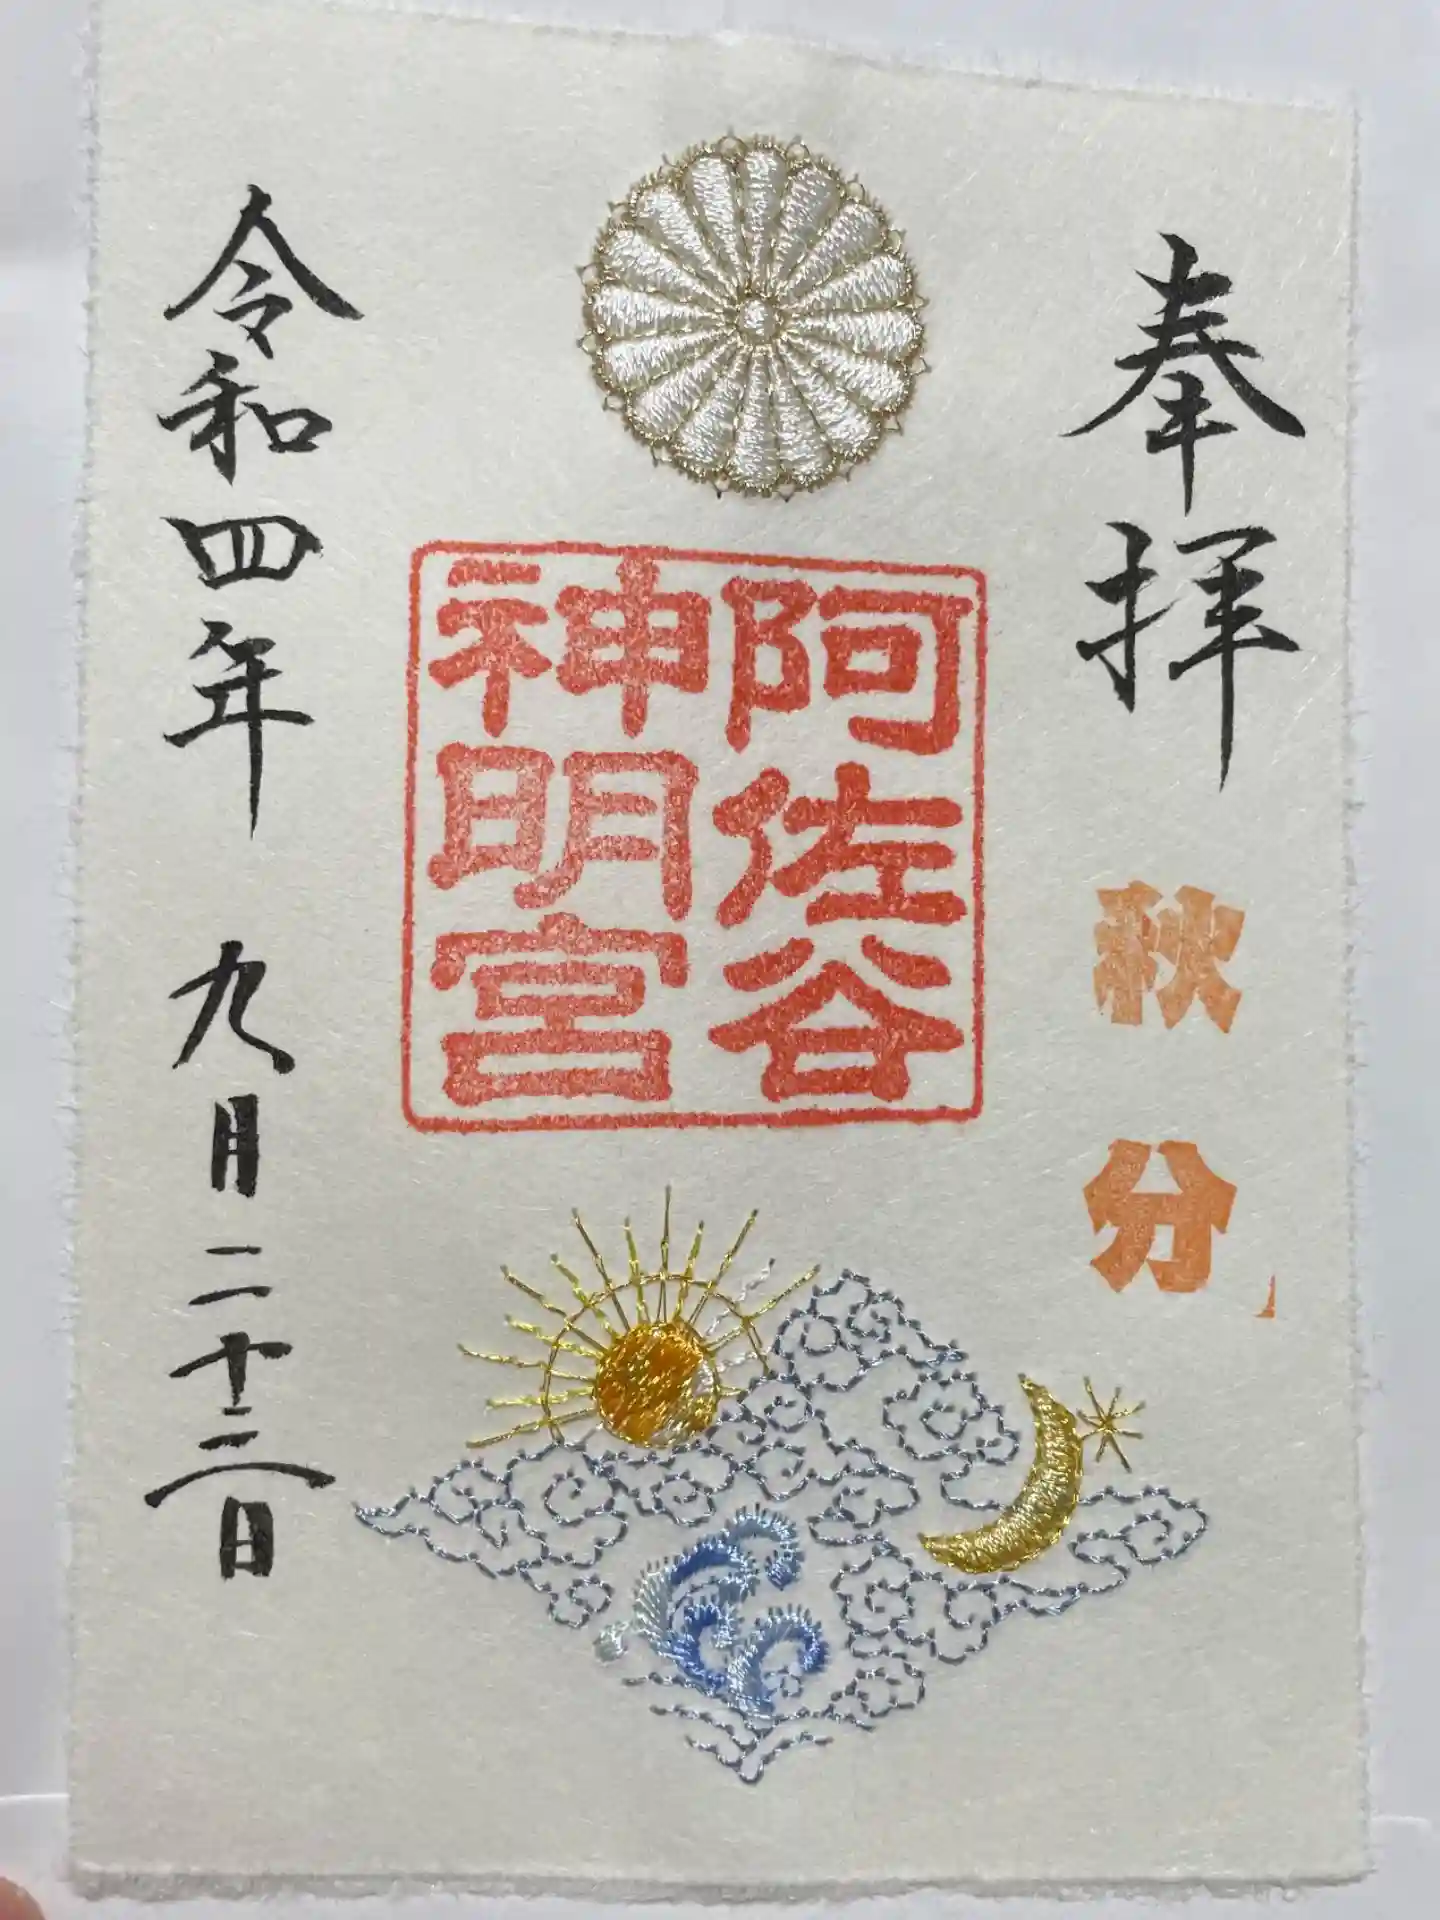 奉拝
秋分
阿佐谷
神明宮
令和四年 九月二十三日